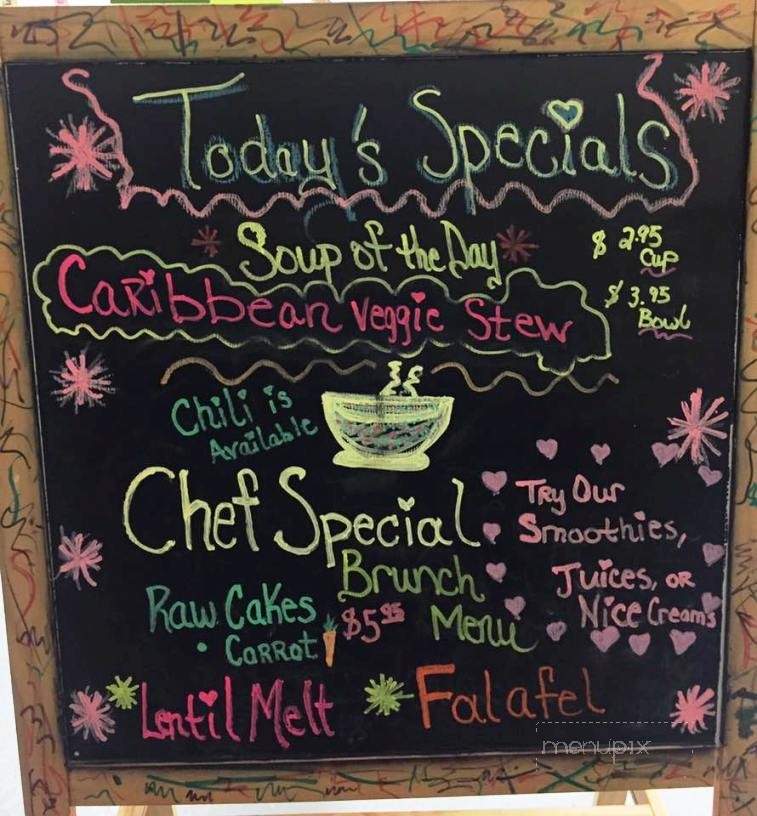 Today's Specials
Soup of the Day
$ 2.95
Cup
Caribbean Veggie Stew
$ 3.95
Bowl
Chili is
Available
Chef Special
Brunch
Menu
Try Our
Smoothies,
Juices, or
Nice Creams
Raw Cakes
• Carrot
$5.95
Lentil Melt
Falafel
menupix